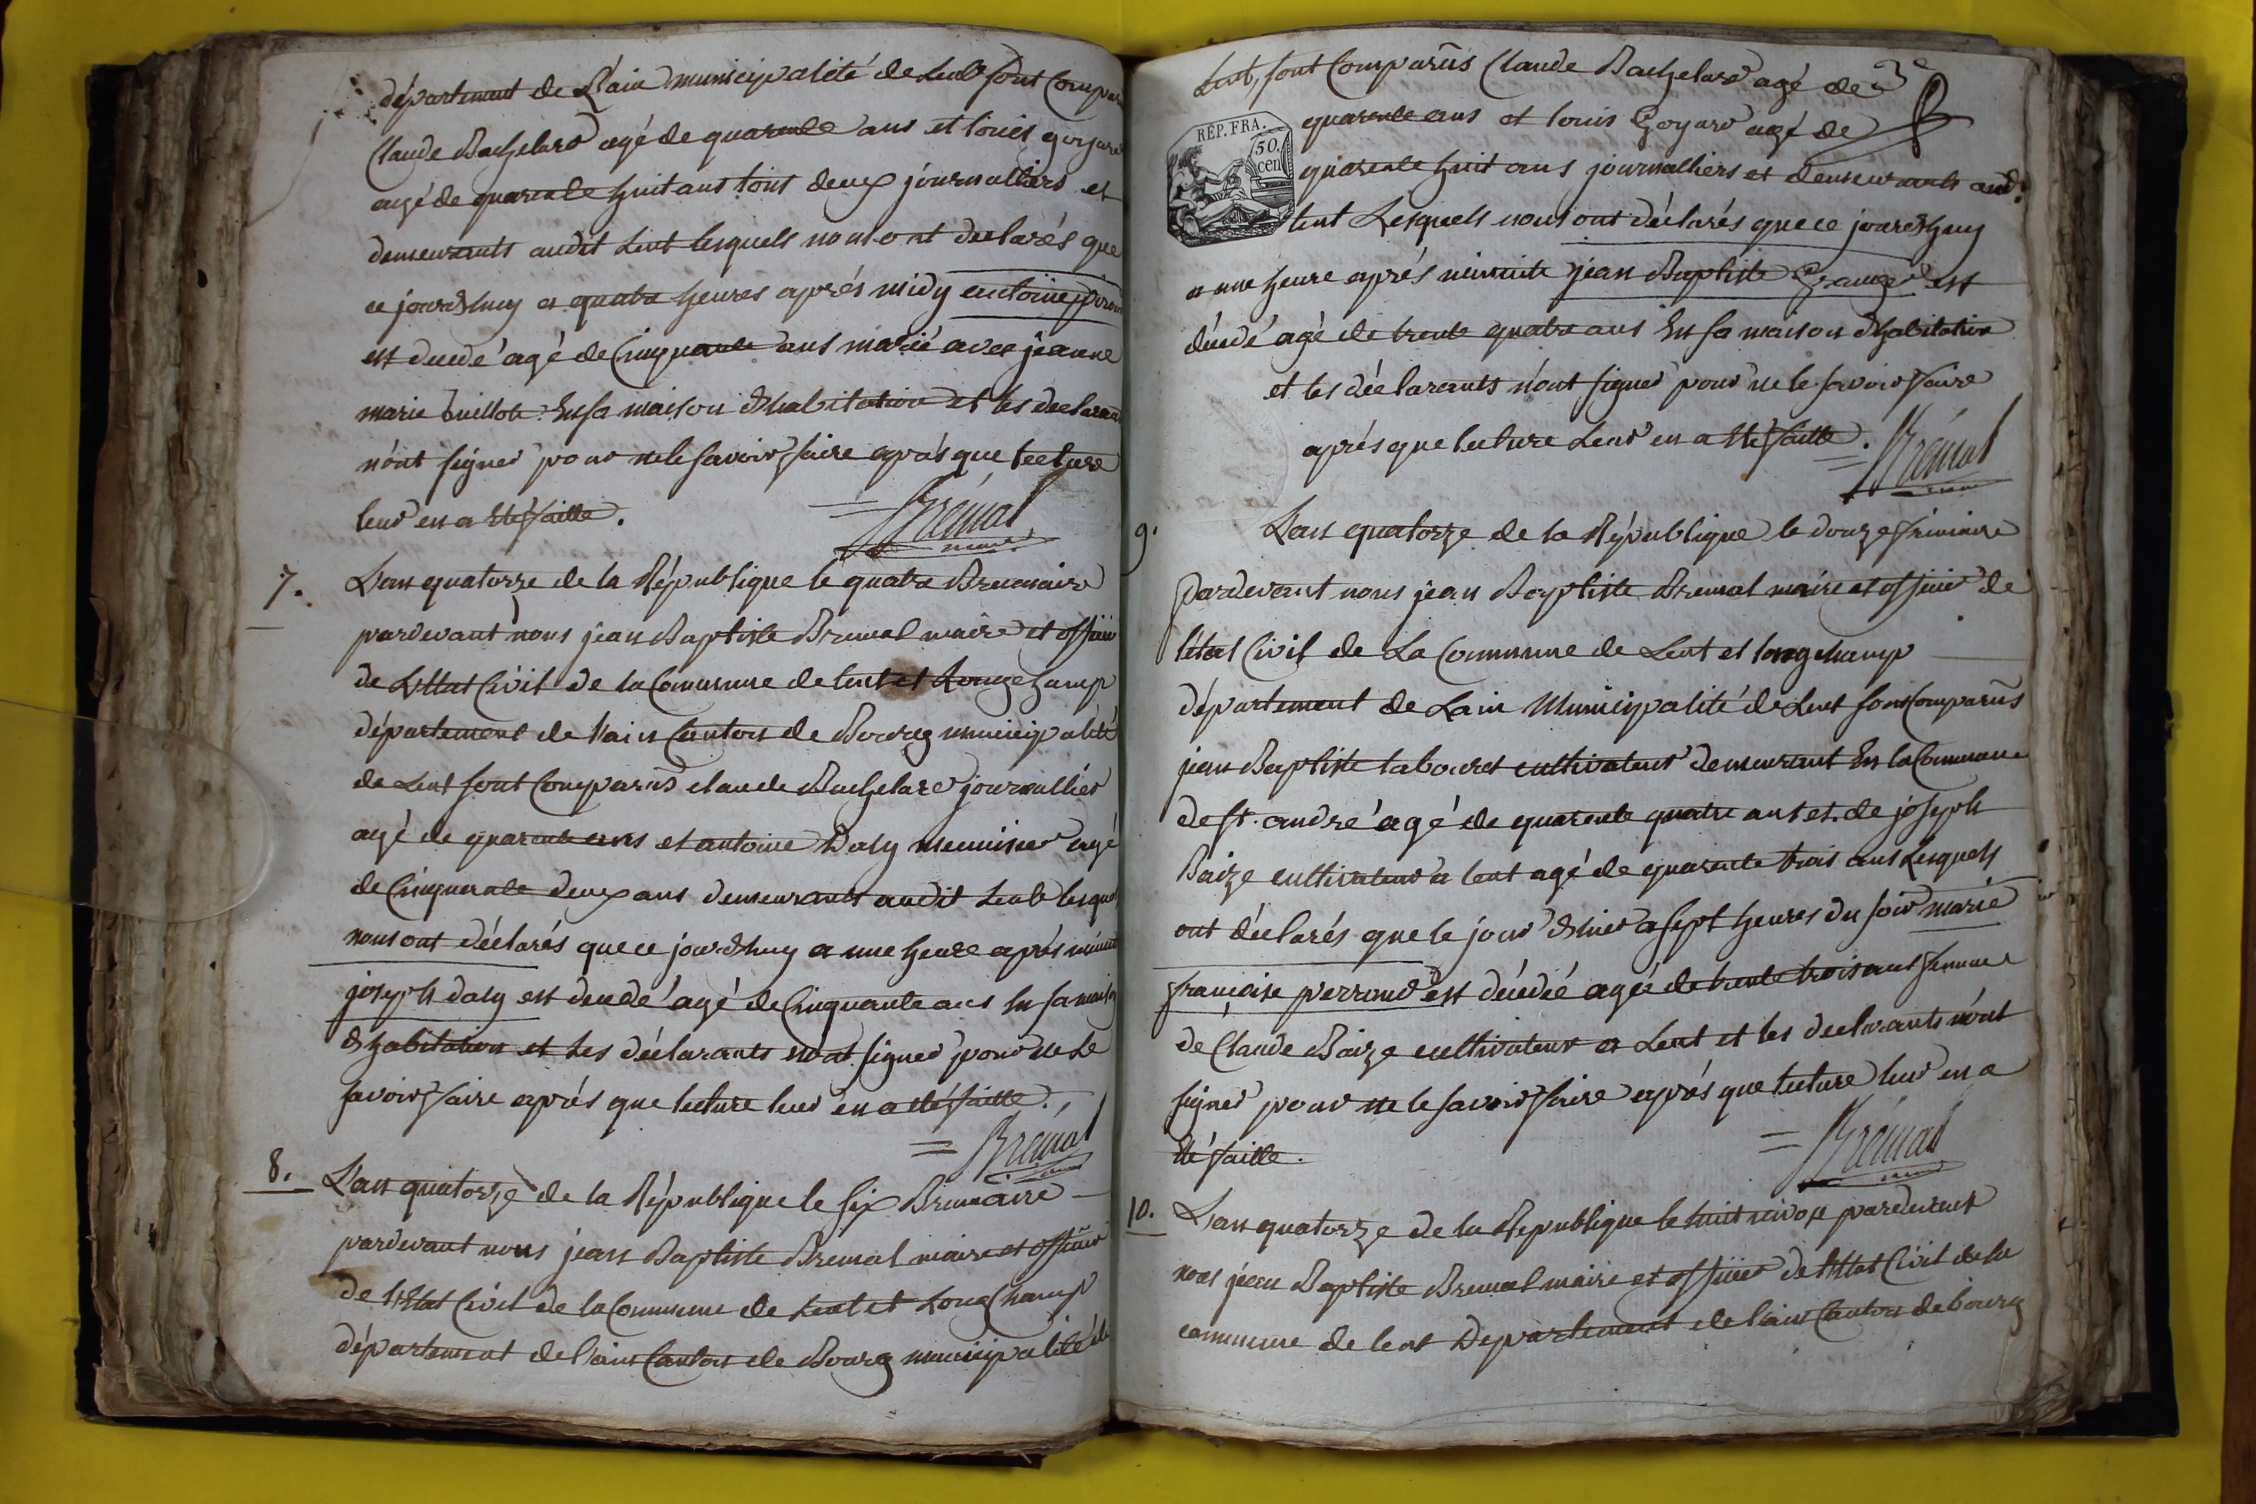 département de L'ain municipalité de Lent sont Compar
Claude Bachelard agé de quarente ans et louis goyard
agé de quarente huit ans tous deux journalliers et
demeurants audit Lent lesquels nous ont declarés que
ce jourdhuy a quatre heures aprés midy antoine
est decedé agé de Cinquante ans marié avec jeanne
marie Guillot En sa maison dhabitation et les declarans
n'ont signer pour ne le savoir faire aprés que lecture
leur en a Eté faitte.
Brémal
maire
7. L'an quatorze de la République le quatre Brumaire
pardevant nous jean Baptiste Bremal maire et officier
de L'Etat Civil de la Commune de lent et Longchamp
département de l'ain Canton de Bourg municipalité
de Lent sont Comparus claude Bachelard journallier
agé de quarente ans et antoine Daly meunier agé
de Cinquente deux ans demeurants audit Lent lesquels
nous ont déclarés que ce jourdhuy a une heure aprés minuit
joseph daly est decedé agé de Cinquante ans En sa maison
dhabitation et Les déclarants n'ont signer pour ne Le
savoir faire aprés que lecture leur en a été faitte.
Brémal
8. L'an quatorze de la République le six Brumaire
pardevant nous jean Baptiste Bremal maire et officier
de l'Etat Civil de la Commune de Lent et Longchamp
département de l'ain Canton de Bourg municipalité de
Lent, sont Comparus Claude Bachelard agé de
3e
REP. FRA.
50. cen
quarente ans et louis Goyard agé de
quarente huit ans journalliers et demeurants aud.
lent Lesquels nous ont déclarés que ce jourdhuy
a une heure aprés minuite jean Baptiste Grange est
décédé agé de trente quatre ans En sa maison dhabitation
et les déclarants n'ont signer pour ne le savoir faire
aprés que lecture Leur en a Eté faitte.
Brémal
maire
9. L'an quatorze de la République le douze frimaire
pardevant nous jean Baptiste Bremal maire et officier de
l'état Civil de La Commune de Lent et longchamp
département de Lain Municipalité de Lent sont Comparus
jean Baptiste labouret cultivateur demeurant En la Commune
de St. andré agé de quarente quatre ans et de joseph
Baize cultivateur a lent agé de quarente trois ans Lesquels
ont déclarés que le jour d'hier a sept heures du soir marie
francoise perroud est décédée agée de trente trois ans femme
de Claude Baize cultivateur a Lent et les declarants n'ont
signer pour ne le savoir faire aprés que lecture leur en a
Eté faitte.
Brémal
maire
10. L'an quatorze de la République le huit nivose pardevant
nous jean Baptiste Bremal maire et officier de l'Etat Civil de la
commune de lent Departement de l'ain Canton de bourg